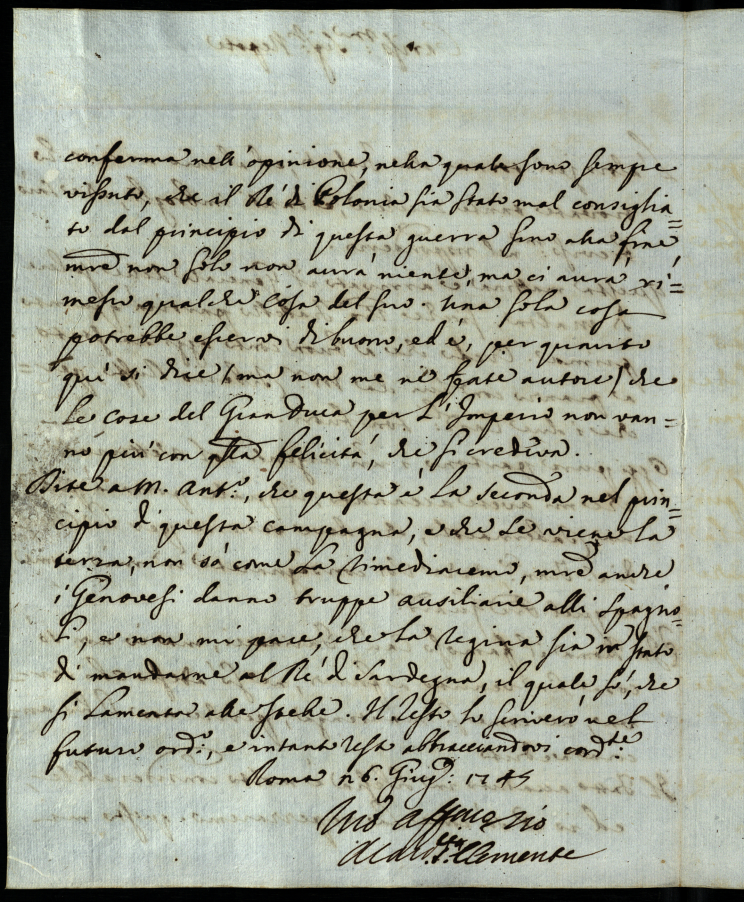 conferma nell' opinione, nella quale sono sempre
vissuto, che il Ré di Polonia sia stato mal consiglia=
to dal principio di questa guerra sino alla fine,
mre non solo non aurà niente, ma ci aurà ri=
messo qualche cosa del suo. Una sola cosa
potrebbe esservi di buono, ed è, per quanto
quì si dice (ma non me ne fate autore) che
le cose del Gran Duca per l' Imperio non van=
no più con qlla felicità, che si credeva.
Dite a M. Ant.º, che questa è la seconda nel prin=
cipio di questa campagna, e che se viene la
terza, non sò come la rimediaremo, mre anche
i Genovesi danno truppe ausiliarie alli Spagno=
li, e non mi pare, che la Regina sia in stato
di mandarne al Ré di Sardegna, il quale sò, che
si lamenta alle stelle. Il resto lo scriverò nel
futuro ord.º, e intanto resto abbracciandovi cord.te
Roma n 6. Giug.: 1745
Vro Affmo Zio
A Card. S. Clemente